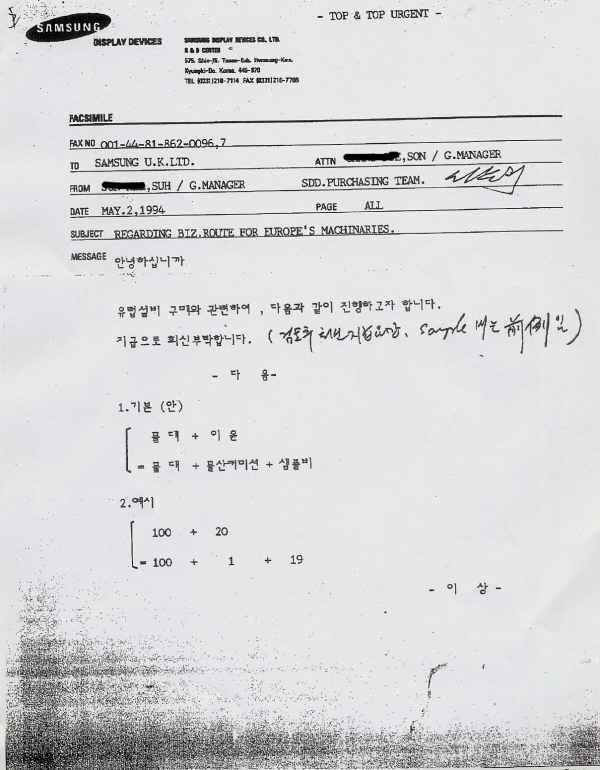 - TOP & TOP URGENT -
SAMSUNG
DISPLAY DEVICES
SAMSUNG DISPLAY DEVICES CO. LTD.
R & D CENTER
575. Shin-Ri. Taean-Eub. Hwasung-Kun.
Kyungki-Do. Korea. 445-970
TEL (0331)210-7114 FAX (0331)210-7788
FACSIMILE
FAX NO 001-44-81-862-0096,7
TO SAMSUNG U.K.LTD. ATTN ,SON / G.MANAGER
FROM ,SUH / G.MANAGER SDD.PURCHASING TEAM.
DATE MAY.2,1994 PAGE ALL
SUBJECT REGARDING BIZ.ROUTE FOR EUROPE'S MACHINARIES.
MESSAGE 안녕하십니까
유럽설비 구매와 관련하여 , 다음과 같이 진행하고자 합니다.
지급으로 회신부탁합니다. ( 검토후 sample 前 )
- 다 음-
1.기본 (안)
물 대 + 이 윤
= 물 대 + 물산커미션 + 샘플비
2.예시
100 + 20
= 100 + 1 + 19
- 이 상 -